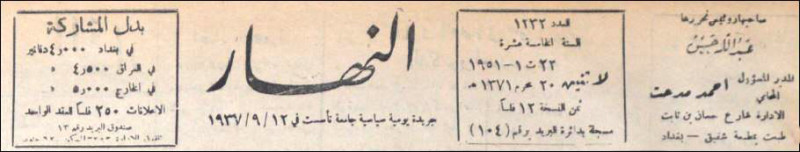 صاحبها ورئيس تحريرها
المدير المسؤول
المحامي
احمد مدحت
الادارة شارع حسان بن ثابت
طبعت بمطبعة شفيق - بغداد
العدد ١٢٣٢
السنة الخامسة عشرة
٢٢ ت١ - ١٩٥١
الاثنين ٢٠ محرم ١٣٧١ هـ
ثمن النسخة ١٢ فلساً
مسجلة بدائرة البريد برقم (١٠٤)
النهار
جريدة يومية سياسية جامعة تأسست في ١٩٣٧/٩/١٢
بدل المشاركة
في بغداد ٤٫٠٠٠ دنانير
في العراق ٤٫٥٠٠ »
في الخارج ٥٫٠٠٠ »
الاعلانات ٢٥٠ فلساً للعقد الواحد
صندوق البريد رقم ١٣